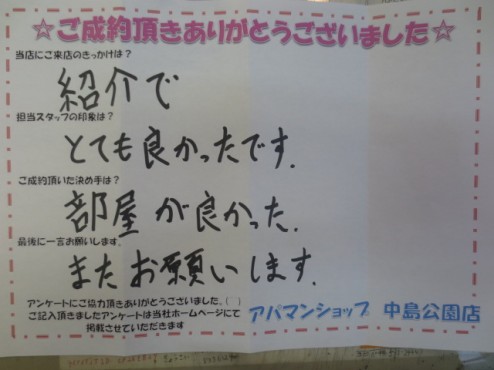 ☆ご成約頂きありがとうございました☆
当店にご来店のきっかけは?
紹介で
担当スタッフの印象は?
とても良かったです.
ご成約頂いた決め手は?
部屋が良かった.
最後に一言お願いします.
またお願いします.
アンケートにご協力頂きありがとうございました。(^^)
ご記入頂きましたアンケートは当社ホームページにて
掲載させていただきます
アパマンショップ 中島公園店